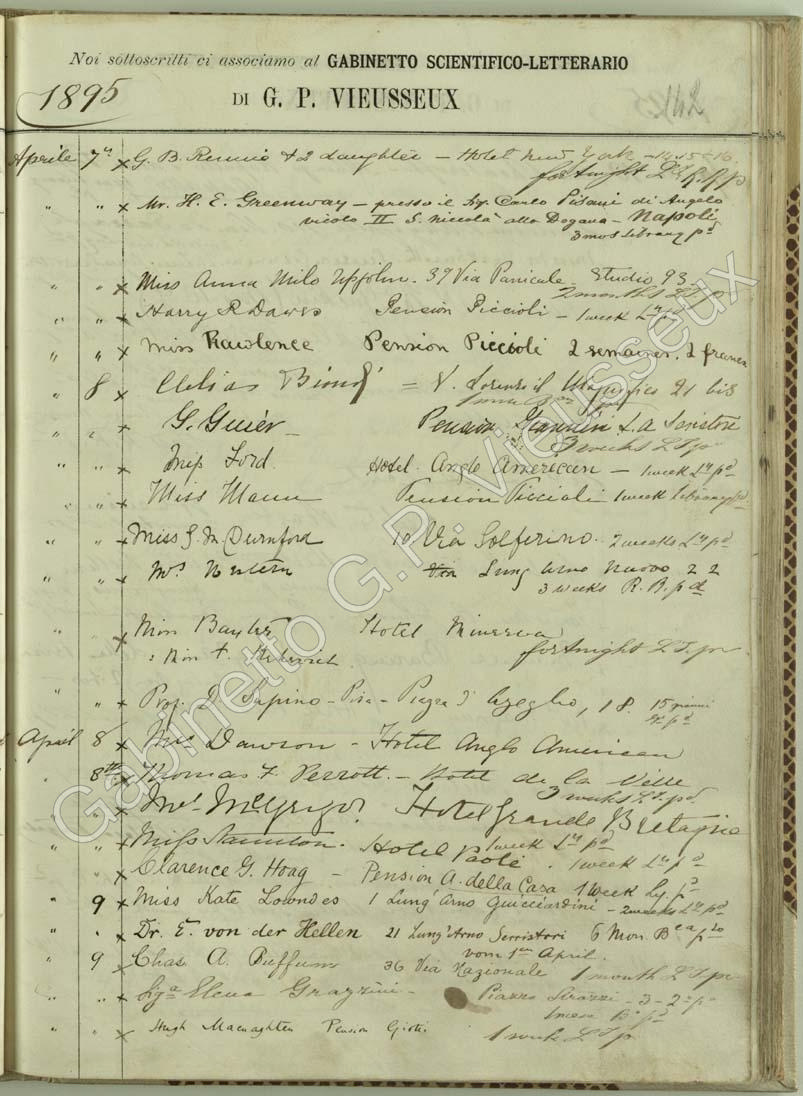 Noi sottoscritti ci associamo al GABINETTO SCIENTIFICO-LETTERARIO
1895
142
DI G. P. VIEUSSEUX
Aprile 7 x G. B. Rennie & 2 daughters – Hotel New York – 14 15 & 16.
fortnight R. R. p
" " x Mr. H. E. Greenway – presso il Sig. Carlo Pisani di Angelo
vicolo II S. Niccolà alla Dogana – Napoli
3 mos library pd
" " x Miss Anna Milo Upjohn. 39 Via Panicale Studio 93
2 months L.T. p
" " x Harry R Dawes Pension Piccioli – 1 week Ly pd
" " x Miss Rawlence Pension Piccioli 2 semaines. 2 francs
" 8 x Biondi = V. Lorenzo il Magnifico 21 bis
" " x G. Guiér Pension L. A Serristori
3 weeks L T p
" " x Miss Ford. Hotel Anglo Américan – 1 week Ly pd
" " x Miss Mann Pension Piccioli 1 week Library pd
" " x Miss G. M Durnford 10 Via Solferino. 2 weeks Ly pd
" " x Mrs Lung Arno Nuovo 22
3 weeks R. B. pd
" x Miss Baxter Hotel Minerva
: Miss fortnight L T. p
" " x Prof. Supino – Pisa – Piazza d'Azeglio, 18. 15
pd
April 8 x Dawson – Hotel Anglo American
" 8th x Thomas F. Perrott. – Hotel de la Ville
3 weeks Ly. pd
" " x Mrs McGrigor Hotel Grande Bretagne
1 week Ly pd
" " x Miss Staunton. Hotel Paoli. 1 week Ly pd
x Clarence G. Hoag – Pension A. della Casa 1 week Ly. pd
" 9 x Miss Kate Lowndes 1 Lung' Arno Guicciardini – 2 weeks Ly pd
" " x Dr. E. von der Hellen 21 Lung'Arno Serristori 6 Mon.
vom 1en April.
" 9 x Chas. A. Buffum 36 Via Nazionale 1 month L T p
" " x Siga Elena Grazzini – Piazza Strozzi – 3 – 2º pº
1 mese pd
" " x Hugh Macnaghten Pension Giotti
1 week L T p
Gabinetto G.P. Vieusseux